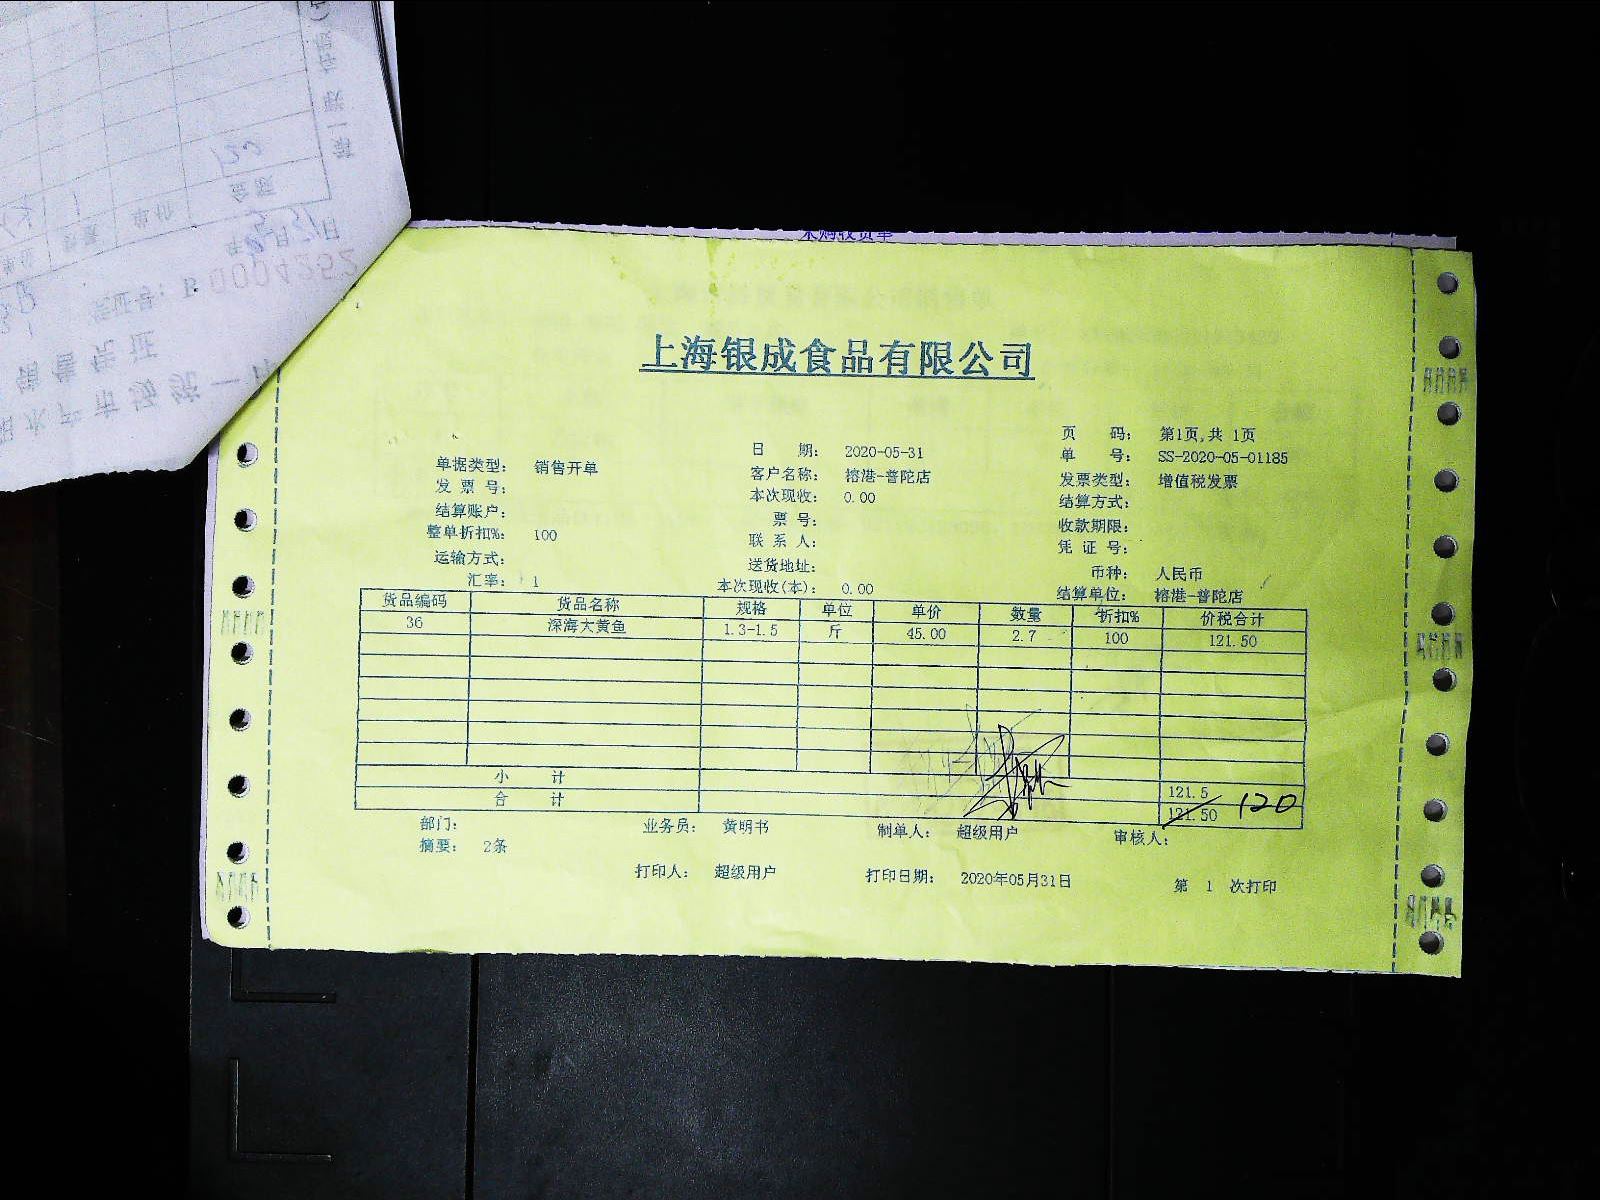 上海银成食品有限公司
页 码： 第1页,共 1页
日 期： 2020-05-31 单 号： SS-2020-05-01185
单据类型： 销售开单 客户名称： 榕港-普陀店 发票类型： 增值税发票
发 票 号： 本次现收： 0.00 结算方式：
结算账户： 票 号： 收款期限：
整单折扣%： 100 联 系 人： 凭 证 号：
运输方式： 送货地址： 币种： 人民币
汇率： 1 本次现收(本)： 0.00 结算单位： 榕港-普陀店
货品编码 货品名称 规格 单位 单价 数量 折扣% 价税合计
36 深海大黄鱼 1.3-1.5 斤 45.00 2.7 100 121.50
小 计 121.5
合 计 121.50 120
部门： 业务员： 黄明书 制单人： 超级用户 审核人：
摘要： 2条
打印人： 超级用户 打印日期： 2020年05月31日 第 1 次打印
采购收货单
水产市场统一
销售凭证
凭证号： 0004252
年 5月31日
数量 单价 金额
1 120
第一联